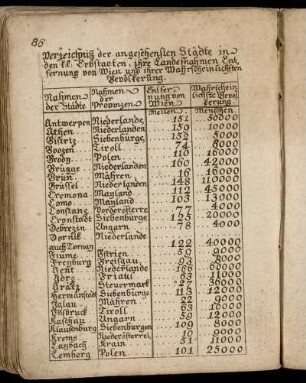 86
Verzeichniß der angesehensten Städte in
den kk: Erbstaaten, ihre Landesnahmen Ent
fernung von Wien und ihrer Wahrscheinlichsten
Bevölkerung.
Nahmen der Städte Nahmen der Provinzen Entfernung von Wien Wahrscheinlichste Bevölkerung
Meilen Menschen
Antwerpen Niederlande 151 50000
Athen Niederlanden 159 10000
Bistriz Siebenbürge 152 5000
Bozen Tiroll 74 8000
Brody Polen 110 16000
Brügge Niederlanden 160 42000
Brün Mähren 16 16000
Brüssel Niederlanden 148 110000
Cremona Mayland 112 45000
Como Mayland 103 13000
Constanz Vorderösterre 77 4000
Cronstadt Siebenbürge 125 20000
Debrezin Ungarn 78 4000
Dornik Niederlande
auch Tornay 122 40000
Fiume Istrien 59 9000
Freyburg Breisgau 93 8000
Gent Niederlande
Görz Friaul 11000
Graz Steuermark 27 36000
Hermanstadt Siebenbürge 113 12000
Iglau Mähren 22 9000
Insbruck Tiroll 10000
Kaschau Ungarn 59 12000
Klausenburg Siebenbürgen 109 8000
Krems Niederösterrei 10 9000
Laybach Krain 51 11000
Lemberg Polen 101 25000